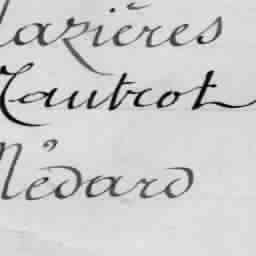 Mazières
Tautrot
Médard